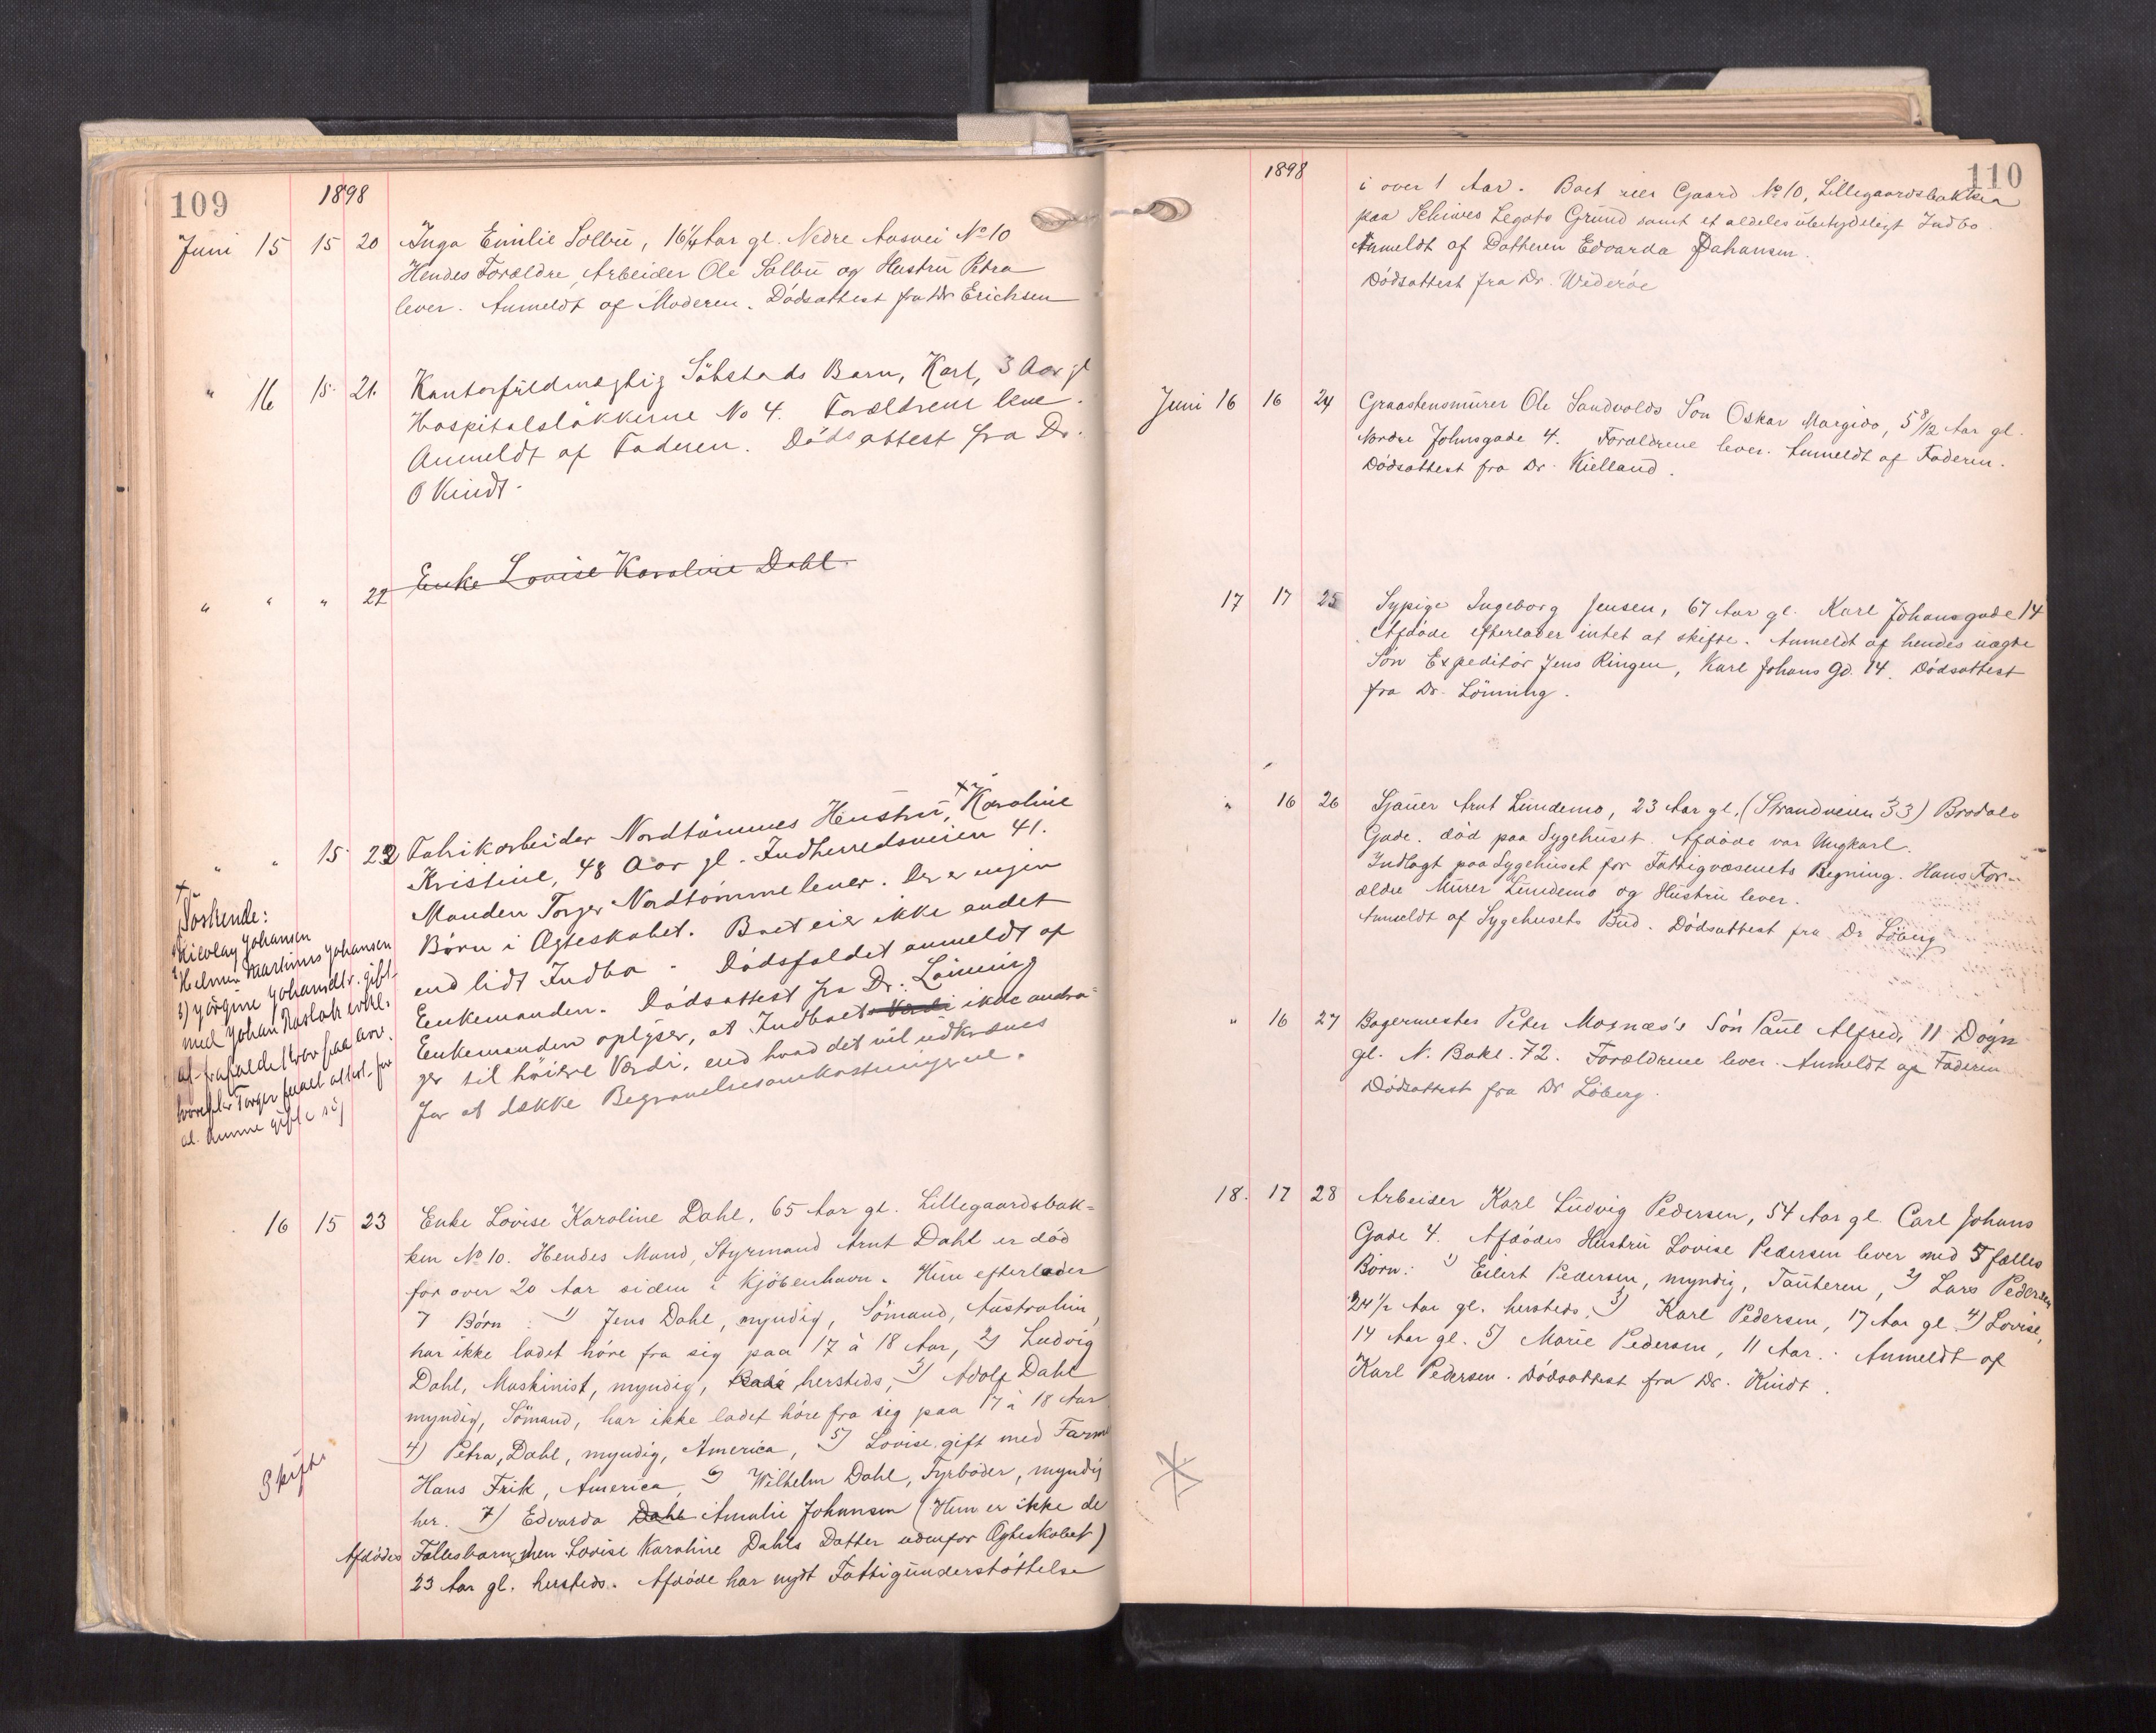 109
1898
Juni 15 15 20 Inga Emilie Solbu, 16 1/4 Aar gl. Nedre Aasvei No 10
Hendes Forældre, Arbeider Ole Solbu og Hustru Petra
lever. Anmeldt af Moderen. Dødsattest fra Dr Erichsen
" 16 15. 21. Kontorfuldmægtig Søbstads Barn, Karl, 3 Aar gl
Hospitalsløkkerne No 4. Forældrene leve.
Anmeldt af Faderen. Dødsattest fra Dr.
O Kindt.
" " " 22 Enke Lovise Karoline Dahl.
" " 15 22 Fabrikarbeider Nordtømmes Hustru, Karoline
Kristine, 48 Aar gl. Indherredsveien 41.
Manden Torger Nordtømme lever. Der er ingen
Børn i Ægteskabet. Boet eier ikke andet
end lidt Indbo. Dødsfaldet anmeldt af
Enkemanden. Dødsattest fra Dr. Lønning
Enkemanden oplyser, at Indboet Værdi ikke andra-
ger til høiere Værdi, end hvad det vil udkræves
for at dække Begravelsesomkostningerne.
+
Søskende:
1 Nicolay Johansen
2 Helmer Martinus Johansen
3) Jørgine Johansdtr. gift
med Johan Rasloh
at frafaldes krav paa arv.
hvorefter Torger attest for
at kunne gifte sig
16 15 23 Enke Lovise Karoline Dahl, 65 Aar gl. Lillegaardsbak-
ken No 10. Hendes Mand, Styrmand Arnt Dahl er død
for over 20 Aar siden i Kjøbenhavn. Hun efterlader
7 Børn: 1) Jens Dahl, myndig, Sømand, Australien,
har ikke ladet høre fra sig paa 17 à 18 Aar, 2) Ludvig
Dahl, Maskinist, myndig, hersteds, 3) Adolf Dahl
myndig, Sømand, har ikke ladet høre fra sig paa 17 à 18 Aar
4) Petra, Dahl, myndig, America, 5) Lovise gift med Farmer
Hans Frik, America, 6) Wilhelm Dahl, Fyrbøder, myndig
her. 7) Edvarda Dahl Amalie Johansen (Hun er ikke de
Afdødes Fællesbarn, men Lovise Karoline Dahls Datter udenfor Ægteskabet)
23 Aar gl. hersteds. Afdøde har nydt Fattigunderstøttelse
Skifte
110
1898
i over 1 Aar. Boet eier Gaard No 10, Lillegaardsbakken
paa Schives Legats Grund samt et aldeles ubetydeligt Indbo.
Anmeldt af Datteren Edvarda Johansen.
Dødsattest fra Dr. Widerøe
Juni 16 16 24 Graastensmurer Ole Sandvolds Søn Oskar Margido, 5 8/12 Aar gl.
Nordre Johnsgade 4. Forældrene lever. Anmeldt af Faderen.
Dødsattest fra Dr. Kielland.
17 17 25 Sypige Ingeborg Jensen, 67 Aar gl. Karl Johansgade 14
Afdøde efterlader intet at skifte. Anmeldt af hendes uægte
Søn Expeditør Jens Ringen, Karl Johans Gd. 14. Dødsattest
fra Dr. Lønning.
" 16 26 Sjauer Arnt Lundemo, 23 Aar gl. (Strandveien 33) Brodals
Gade. død paa Sygehuset. Afdøde var Ungkarl.
Indlagt paa Sygehuset for Fattigvæsenets Regning. Hans For-
ældre Murer Lundemo og Hustru lever.
Anmeldt af Sygehusets Bud. Dødsattest fra Dr Løberg
" 16 27 Bagermester Peter Mosnæs's Søn Paul Alfred, 11 Døgn
gl. N. Bakl. 72. Forældrene lever. Anmeldt af Faderen
Dødsattest fra Dr Løberg.
18. 17 28 Arbeider Karl Ludvig Pedersen, 54 Aar gl. Carl Johans
Gade 4. Afdødes Hustru Lovise Pedersen lever med 5 fælles
Børn: 1) Eilert Pedersen, myndig, Tauteren, 2) Lars Pedersen
24 1/2 Aar gl. hersteds, 3) Karl Pedersen, 17 Aar gl 4) Lovise,
14 Aar gl. 5) Marie Pedersen, 11 Aar. Anmeldt af
Karl Pedersen. Dødsattest fra Dr. Kindt.